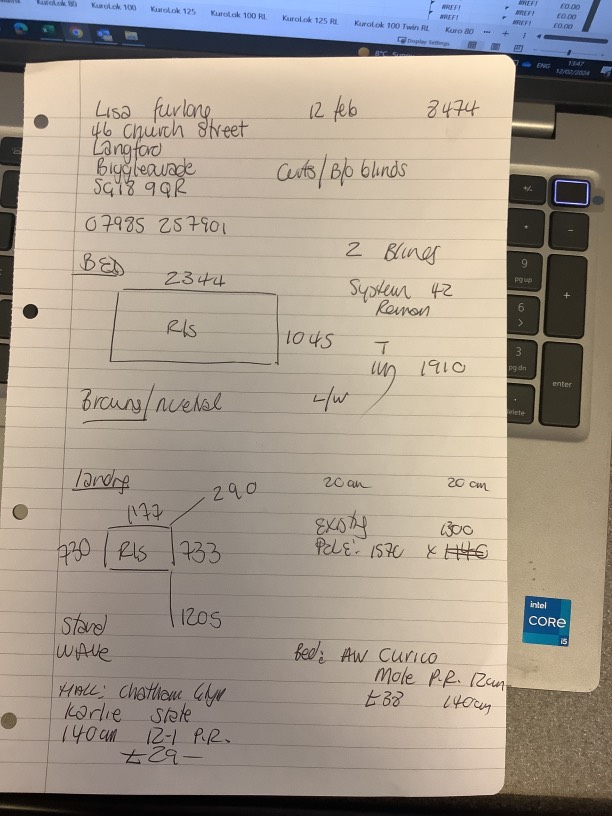 KuroLok 80 KuroLok 100 KuroLok 125 KuroLok 100 RL KuroLok 125 RL KuroLok 100 Twin RL Kuro 80
#REF! £0.00
#REF! £0.00
#REF! £0.00
Display Settings
8°C
ENG 13:47
12/02/2024
Lisa Furlong 12 feb 8474
46 Church Street
Langford
Biggleswade Curts/B/o blinds
SG18 9QR
07985 257901
BED 2 Blinds
2344 System 42
Remon
R/s 1045 T
1910
Browns/ L/W
landing 20cm 20cm
290
1177 Existg 1300
730 R/s 733 Pole: 1570 x
1205
Stand
WAVE Bed: AW Curico
Mole P.R. 12cm
HALL: Chatham Glyn £38 140cm
Karlie Slate
140cm 12-1 P.R.
£29 —
+/-
* -
9
pg up
+
6
>
3
pg dn
enter
.
delete
intel
CORE
i5